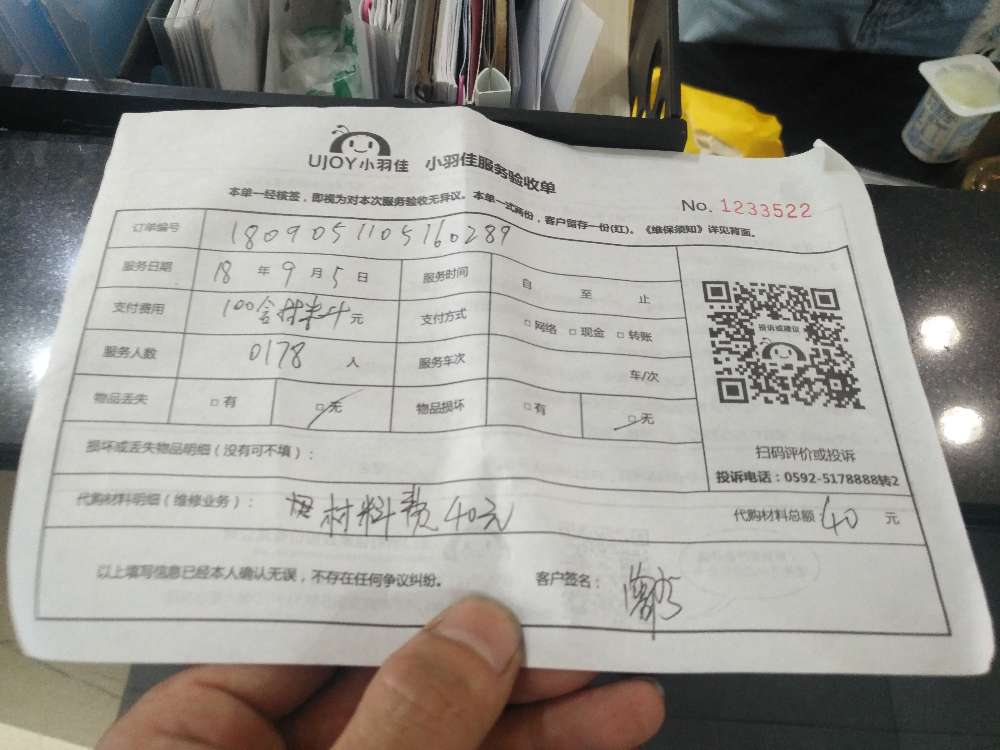 UJOY小羽佳 小羽佳服务验收单
本单一经核签，即视为对本次服务验收无异议。本单一式两份，客户留存一份(红)。《维保须知》详见背面。
No. 1233522
订单编号 1809051105160289
服务日期 18 年 9 月 5 日 服务时间 自 至 止
支付费用 100含材料 元 支付方式 □ 网络 □ 现金 □ 转账
服务人数 0178 人 服务车次 车/次
物品丢失 □ 有 □ 无 物品损坏 □ 有 □ 无
投诉或建议
扫码评价或投诉
投诉电话：0592-5178888转2
损坏或丢失物品明细（没有可不填）：
代购材料明细（维修业务）： 材料费40元 代购材料总额 40 元
以上填写信息已经本人确认无误，不存在任何争议纠纷。 客户签名：